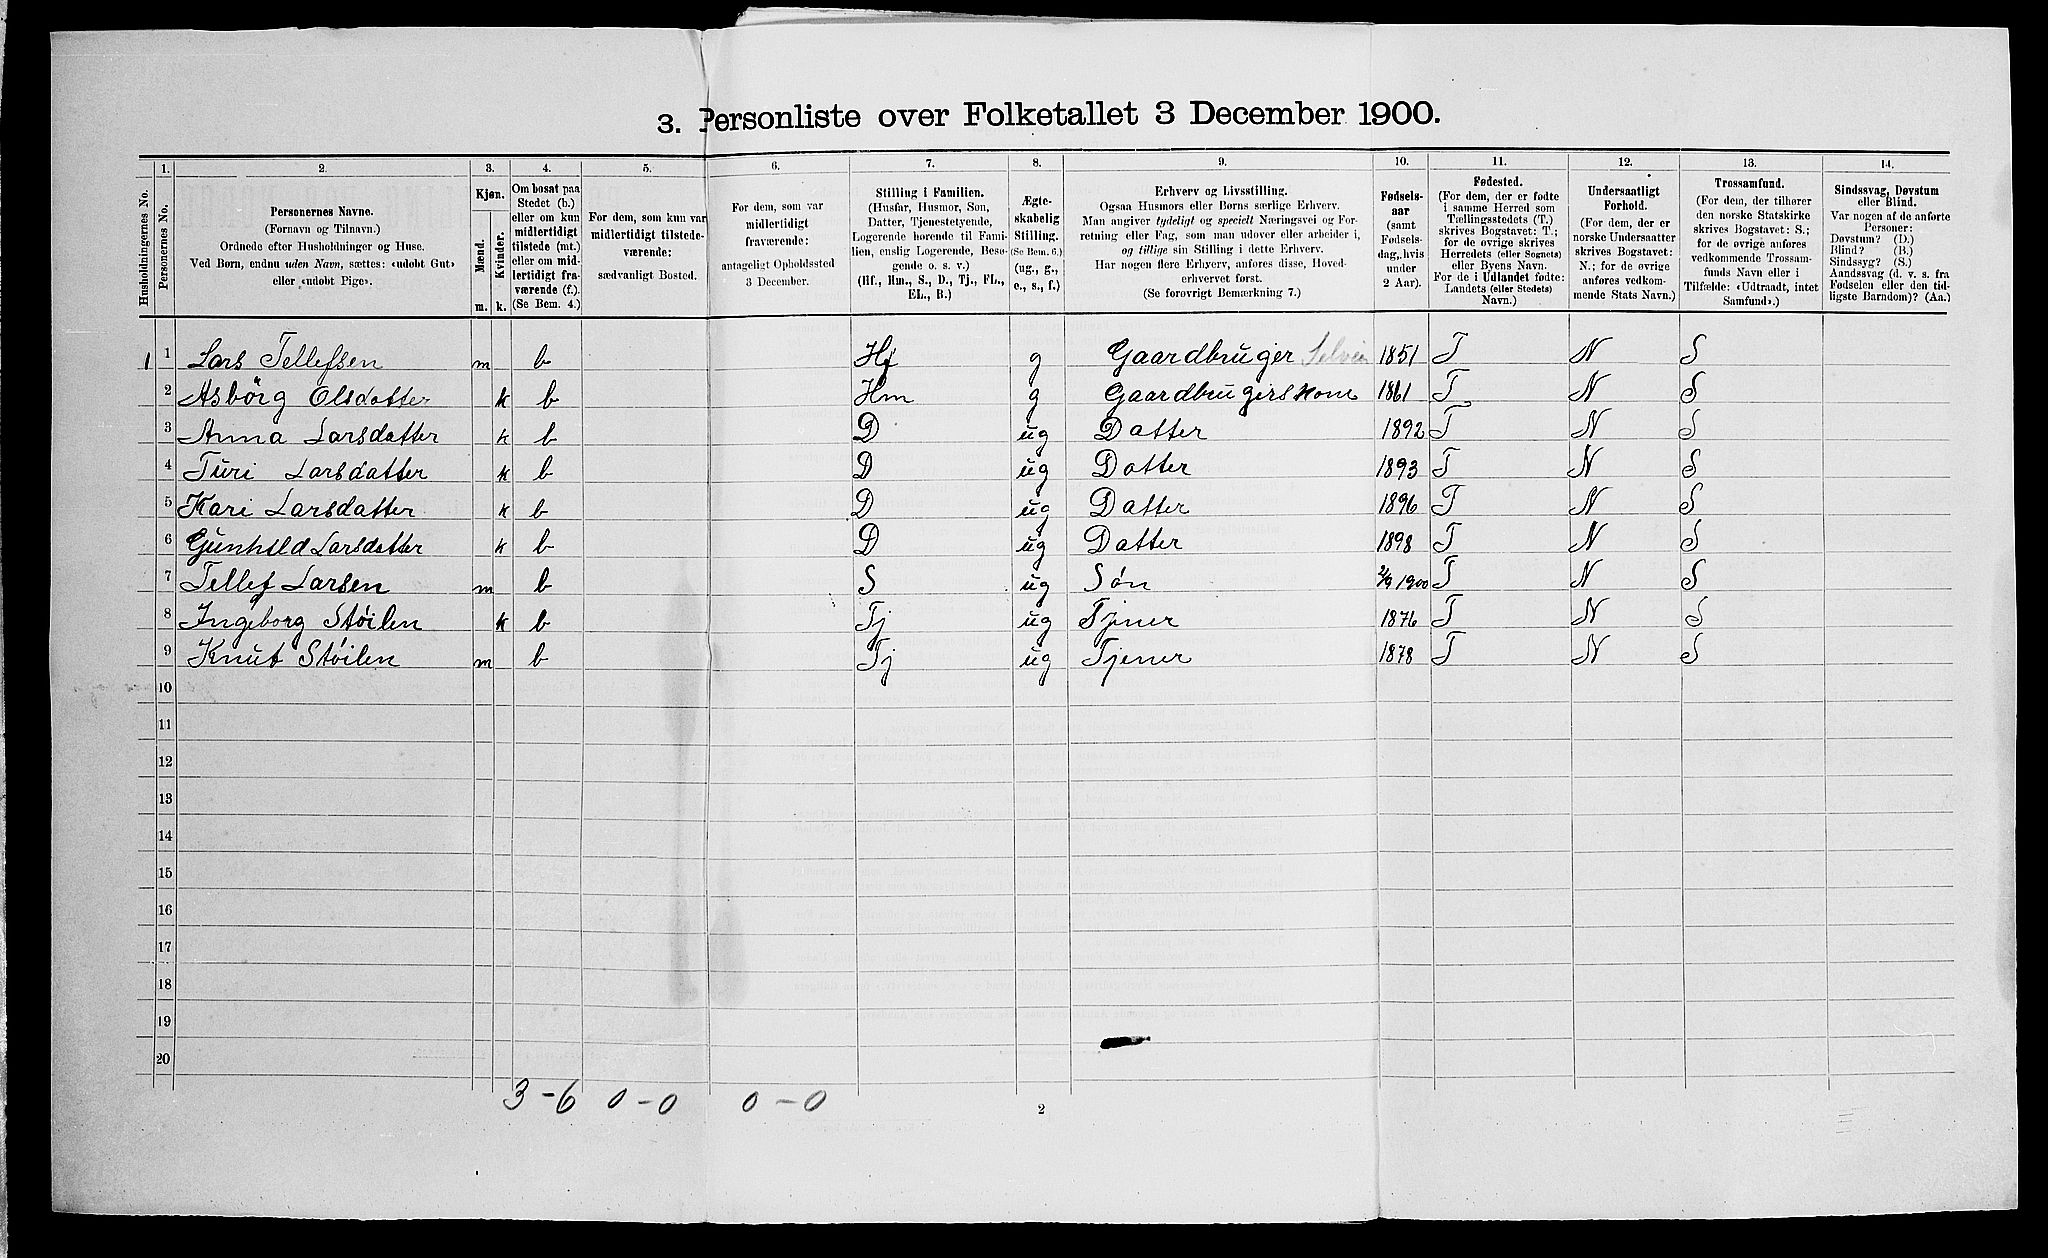 3. Personliste over Folketallet 3 December 1900.
1. 2. 3. 4. 5. 6. 7. 8. 9. 10. 11. 12. 13. 14.
Husholdningernes No.
Personernes No.
Personernes Navne.
(Fornavn og Tilnavn.)
Ordnede efter Husholdninger og Huse.
Ved Børn, endnu uden Navn, sættes: «udobt Gut»
eller «udobt Pige».
Kjøn.
Mænd.
Kvinder.
m. k.
Om bosat paa
Stedet (b.)
eller om kun
midlertidigt
tilstede (mt.)
eller om mid-
lertidigt fra-
værende (f.).
(Se Bem. 4.)
For dem, som kun var
midlertidigt tilstede-
værende:
sædvanligt Bosted.
For dem, som var
midlertidigt
fraværende:
antageligt Opholdssted
3 December.
Stilling i Familien.
(Husfar, Husmor, Søn,
Datter, Tjenestetyende,
Logerende hørende til Fami-
lien, enslig Logerende, Besø-
gende o. s. v.)
(Hf., Hm., S., D., Tj., FL.,
EL., B.)
Ægte-
skabelig
Stilling.
(Se Bem. 6.)
(ug., g.,
e., s., f.)
Erhverv og Livsstilling.
Ogsaa Husmors eller Børns særlige Erhverv.
Man angiver tydeligt og specielt Næringsvei og For-
retning eller Fag, som man udover eller arbeider i,
og tillige sin Stilling i dette Erhverv.
Har nogen flere Erhverv, anføres disse, Hoved-
erhvervet først.
(Se forøvrigt Bemærkning 7.)
Fødsels-
aar
(samt
Fødsels-
dag, hvis
under
2 Aar).
Fødested.
(For dem, der er fødte
i samme Herred som
Tællingsstedets (T.)
skrives Bogstavet: T.;
for de øvrige skrives
Herredets (eller Sognets)
eller Byens Navn.
For de i Udlandet fødte:
Landets (eller Stedets)
Navn.)
Undersaatligt
Forhold.
(For dem, der er
norske Undersaatter
skrives Bogstavet:
N.; for de øvrige
anføres vedkom-
mende Stats Navn.)
Trossamfund.
(For dem, der tilhører
den norske Statskirke
skrives Bogstavet: S.;
for de øvrige anføres
vedkommende Trossam-
funds Navn eller i
Tilfælde: «Udtraadt, intet
Samfund».)
Sindssvag, Døvstum
eller Blind.
Var nogen af de anførte
Personer:
Døvstum? (D.)
Blind? (B.)
Sindssyg? (S.)
Aandssvag (d. v. s. fra
Fødselen eller den tid-
ligste Barndom)? (Aa.)
1 1 Lars Tellefsen m b Hf g Gaardbruger Selveier 1851 T N S
2 Asbörg Olsdatter k b Hm g Gaardbrugerskone 1861 T N S
3 Anna Larsdatter k b D ug Datter 1892 T N S
4 Turi Larsdatter k b D ug Datter 1893 T N S
5 Kari Larsdatter k b D ug Datter 1896 T N S
6 Gunhild Larsdatter k b D ug Datter 1898 T N S
7 Tellef Larsen m b S ug Søn 2/9 1900 T N S
8 Ingeborg Støilen k b Tj ug Tjener 1876 T N S
9 Knut Støilen m b Tj ug Tjener 1878 T N S
10
11
12
13
14
15
16
17
18
19
20
3 - 6 0 - 0 0 - 0
2